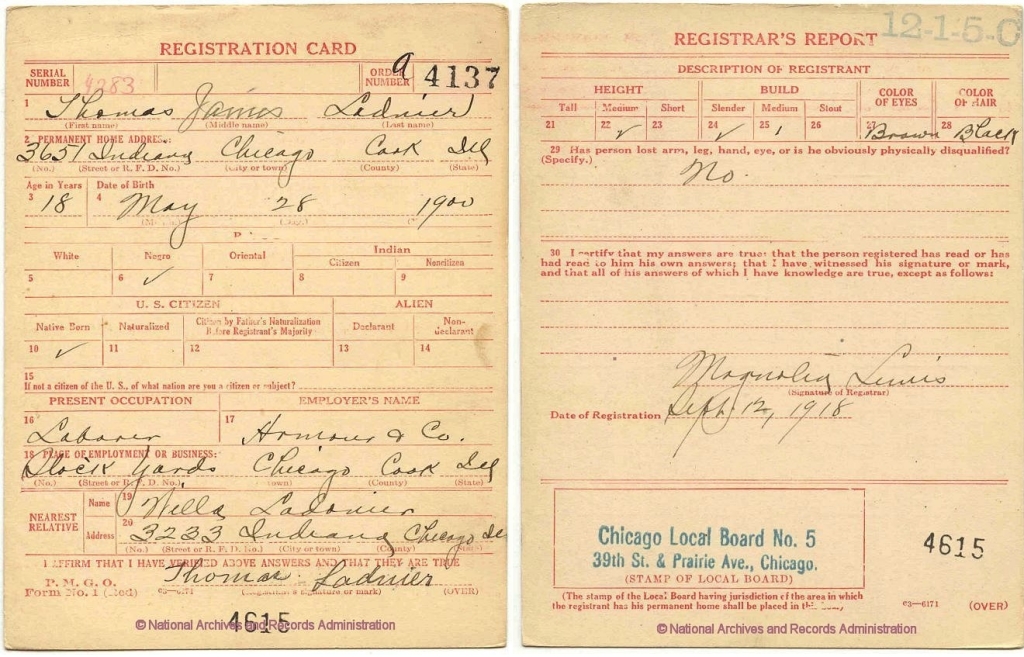 REGISTRATION CARD
SERIAL NUMBER 4283 ORDER NUMBER a 4137
1 Thomas James Ladnier
(First name) (Middle name) (Last name)
2 PERMANENT HOME ADDRESS:
3651 Indiana Chicago Cook Ill
(No.) (Street or R. F. D. No.) (City or town) (County) (State)
Age in Years Date of Birth
3 18 4 May 28 1900
White Negro Oriental Indian
Citizen Noncitizen
5 6 ✓ 7 8 9
U. S. CITIZEN ALIEN
Native Born Naturalized Citizen by Father's Naturalization Before Registrant's Majority Declarant Non-declarant
10 ✓ 11 12 13 14
15
If not a citizen of the U. S., of what nation are you a citizen or subject?
PRESENT OCCUPATION EMPLOYER'S NAME
16 Laborer 17 Armour & Co.
18 PLACE OF EMPLOYMENT OR BUSINESS:
Stock Yards Chicago Cook Ill
(No.) (Street or R. F. D. No.) (County) (State)
NEAREST RELATIVE Name 19 Willa Ladnier
Address 20 3233 Indiana Chicago Ill
(No.) (Street or R. F. D. No.) (City or town) (County) (State)
I AFFIRM THAT I HAVE VERIFIED ABOVE ANSWERS AND THAT THEY ARE TRUE
P. M. G. O.
Form No. 1 (Red) 03—6171 Thomas Ladnier (Registrant's signature or mark) (OVER)
4615
© National Archives and Records Administration
12-1-5-C
REGISTRAR'S REPORT
DESCRIPTION OF REGISTRANT
HEIGHT BUILD COLOR OF EYES COLOR OF HAIR
Tall Medium Short Slender Medium Stout
21 22 ✓ 23 24 ✓ 25 26 27 Brown 28 Black
29 Has person lost arm, leg, hand, eye, or is he obviously physically disqualified?
(Specify.) No.
30 I certify that my answers are true; that the person registered has read or has
had read to him his own answers; that I have witnessed his signature or mark,
and that all of his answers of which I have knowledge are true, except as follows:
Magnolia Lewis
(Signature of Registrar)
Date of Registration Sept. 12, 1918
Chicago Local Board No. 5
39th St. & Prairie Ave., Chicago.
(STAMP OF LOCAL BOARD)
4615
(The stamp of the Local Board having jurisdiction of the area in which
the registrant has his permanent home shall be placed in this box.)
03—6171 (OVER)
© National Archives and Records Administration